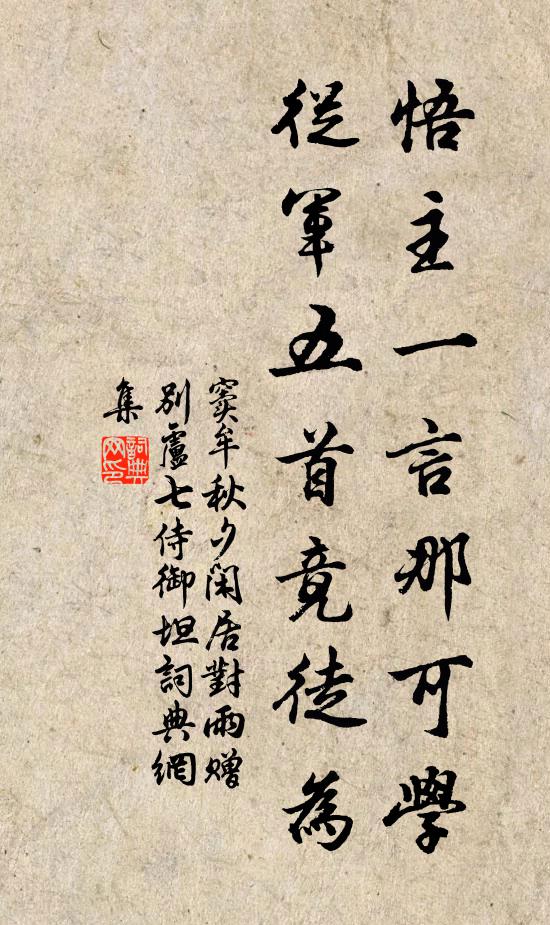 悟主一言那可學
從軍五首竟徒為
竇牟秋夕閑居對雨贈
別盧七侍御坦詞典網
集
詞典網印